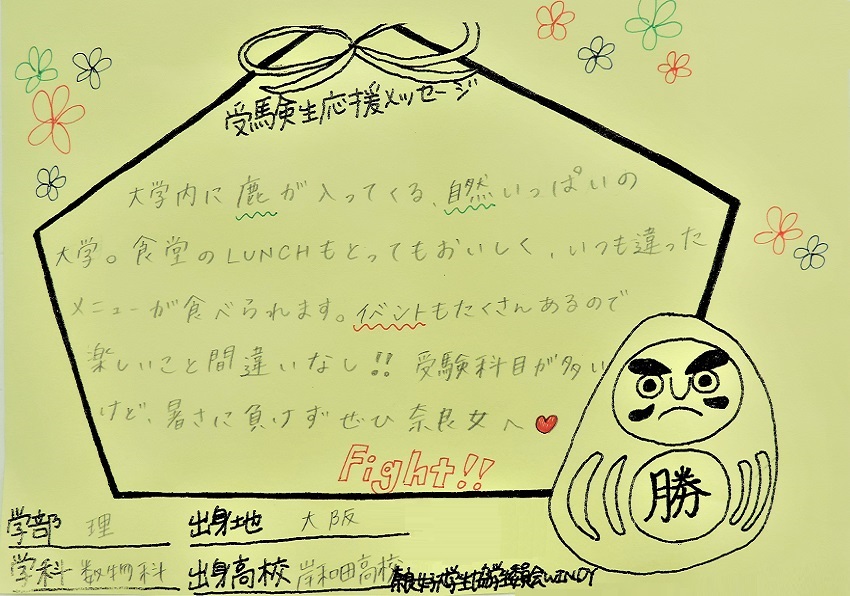 受験生応援メッセージ
大学内に鹿が入ってくる、自然いっぱいの
大学。食堂のLUNCHもとってもおいしく、いつも違った
メニューが食べられます。イベントもたくさんあるので
楽しいこと間違いなし!! 受験科目が多い
けど、暑さに負けずぜひ奈良女へ
Fight!!
勝
学部 理 出身地 大阪
学科 数物科 出身高校 岸和田高校
奈良女子大学生協学生委員会WINDY